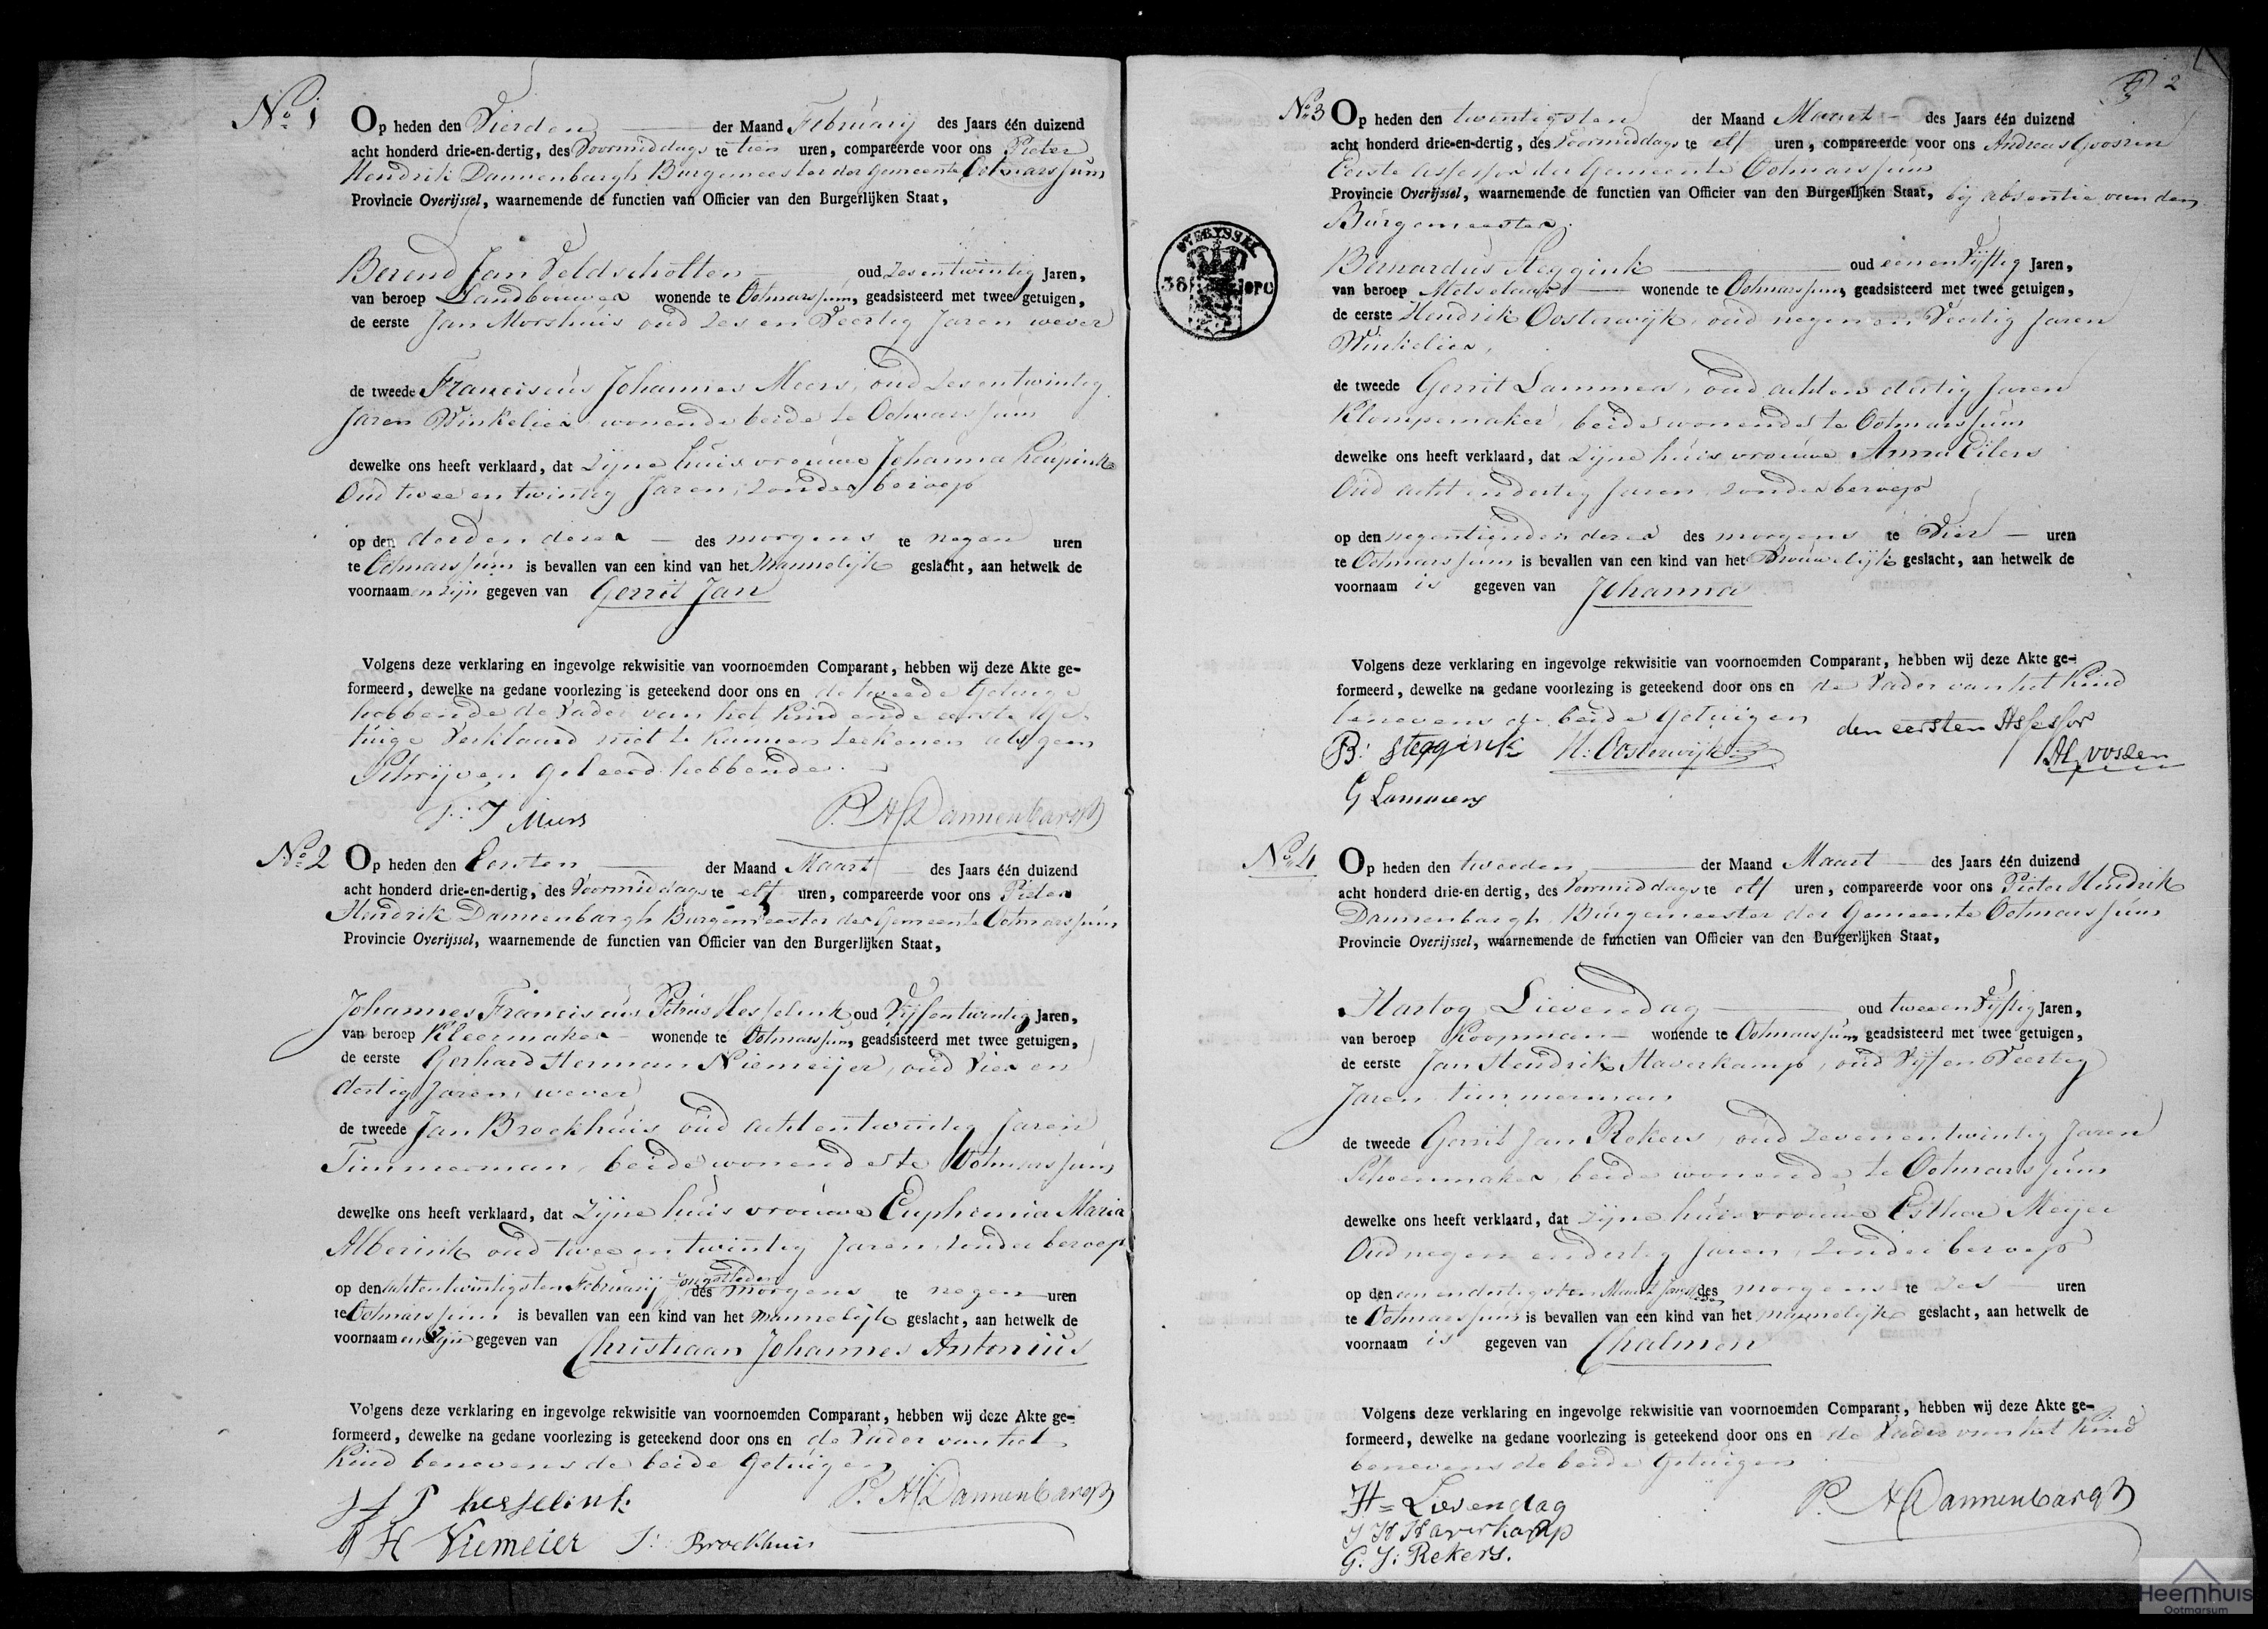 No. 1
Op heden den Vierden der Maand Februarij des Jaars één duizend
acht honderd drie-en-dertig, des Voormiddags te tien uren, compareerde voor ons Pieter
Hendrik Dannenbargh Burgemeester der Gemeente Ootmarssum
Provincie Overijssel, waarnemende de functien van Officier van den Burgerlijken Staat,
Berend Jan Veldscholten oud Zesentwintig Jaren,
van beroep Landbouwer wonende te Ootmarssum, geadsisteerd met twee getuigen,
de eerste Jan Morshuis oud Zes en Veertig Jaren wever
de tweede Franciscus Johannes Meers, oud Zesentwintig
Jaren Winkelier wonende beide te Ootmarssum
dewelke ons heeft verklaard, dat Zijne huisvrouwe Johanna
Oud twee en twintig Jaren, zonder beroep
op den derden dezer des morgens te negen uren
te Ootmarssum is bevallen van een kind van het Mannelijk geslacht, aan hetwelk de
voornaamen zijn gegeven van Gerrit Jan
Volgens deze verklaring en ingevolge rekwisitie van voornoemden Comparant, hebben wij deze Akte ge-
formeerd, dewelke na gedane voorlezing is geteekend door ons en de tweede Getuige
hebbende de Vader van het Kind en de eerste Ge-
tuige Verklaard niet te kunnen teekenen als geen
Schrijven geleerd hebbende.
F: J Meers P. H. Dannenbargh
No. 2
Op heden den Eersten der Maand Maart des Jaars één duizend
acht honderd drie-en-dertig, des Voormiddags te elf uren, compareerde voor ons Pieter
Hendrik Dannenbargh Burgemeester der Gemeente Ootmarssum
Provincie Overijssel, waarnemende de functien van Officier van den Burgerlijken Staat,
Johannes Franciscus Petrus Hesselink oud Vijfentwintig Jaren,
van beroep Kleermaker wonende te Ootmarssum, geadsisteerd met twee getuigen,
de eerste Gerhard Herman Niemeijer, oud Vier en
dertig Jaren, wever
de tweede Jan Broekhuis oud achtentwintig Jaren
Timmerman, beide wonende te Ootmarssum
dewelke ons heeft verklaard, dat Zijne huisvrouwe Euphemia Maria
Alberink oud twee en twintig Jaren, zonder beroep
op den achtentwintigsten Februarij jongstleden des morgens te negen uren
te Ootmarssum is bevallen van een kind van het mannelijk geslacht, aan hetwelk de
voornaamen Zijn gegeven van Christiaan Johannes Antonius
Volgens deze verklaring en ingevolge rekwisitie van voornoemden Comparant, hebben wij deze Akte ge-
formeerd, dewelke na gedane voorlezing is geteekend door ons en de Vader van het
Kind benevens de beide Getuigen
J F P hesselink P. H. Dannenbargh
G H Niemeier J: Broekhuis
2
No. 3
Op heden den twintigsten der Maand Maart des Jaars één duizend
acht honderd drie-en-dertig, des Voormiddags te elf uren, compareerde voor ons Andreas Goossen
Eerste Assessor der Gemeente Ootmarssum
Provincie Overijssel, waarnemende de functien van Officier van den Burgerlijken Staat, bij absentie van den
Burgemeester.
OVERYSSEL
38 OPC
Bernardus Steggink oud eenenVijftig Jaren,
van beroep Metselaar wonende te Ootmarssum, geadsisteerd met twee getuigen,
de eerste Hendrik Oosterwijk, oud negen en Veertig Jaren
Winkelier,
de tweede Gerrit Lammers, oud achten dertig Jaren
Klompemaker, beide wonende te Ootmarssum
dewelke ons heeft verklaard, dat Zijne huisvrouwe Anna Eilers
Oud acht en dertig Jaren, zonder beroep
op den negentienden dezer des morgens te Vier uren
te Ootmarssum is bevallen van een kind van het Vrouwelijk geslacht, aan hetwelk de
voornaam is gegeven van Johanna
Volgens deze verklaring en ingevolge rekwisitie van voornoemden Comparant, hebben wij deze Akte ge-
formeerd, dewelke na gedane voorlezing is geteekend door ons en de Vader van het Kind
benevens de beide Getuigen den eersten Assessor
B: steggink H: Oosterwijk
G Lammers
No. 4
Op heden den tweeden der Maand Maart des Jaars één duizend
acht honderd drie-en dertig, des Voormiddags te elf uren, compareerde voor ons Pieter Hendrik
Dannenbargh Burgemeester der Gemeente Ootmarssum
Provincie Overijssel, waarnemende de functien van Officier van den Burgerlijken Staat,
Hartog Lievendag oud tweeenVijftig Jaren,
van beroep Koopman wonende te Ootmarssum, geadsisteerd met twee getuigen,
de eerste Jan Hendrik Haverkamp, oud Vijf en Veertig
Jaren timmerman
de tweede Gerrit Jan Rekers, oud Zevenentwintig Jaren
Schoenmaker, beide wonende te Ootmarssum
dewelke ons heeft verklaard, dat zijne huisvrouwe Esther Meijer
Oud negen en dertig Jaren, zonder beroep
op den een en dertigsten Maart des morgens te zes uren
te Ootmarssum is bevallen van een kind van het mannelijk geslacht, aan hetwelk de
voornaam is gegeven van Chalmon
Volgens deze verklaring en ingevolge rekwisitie van voornoemden Comparant, hebben wij deze Akte ge-
formeerd, dewelke na gedane voorlezing is geteekend door ons en de Vader van het Kind
benevens de beide Getuigen
H= Lievendag P. H. Dannenbargh
J H Haverkamp
G. J: Rekers.
Heemhuis
Ootmarsum